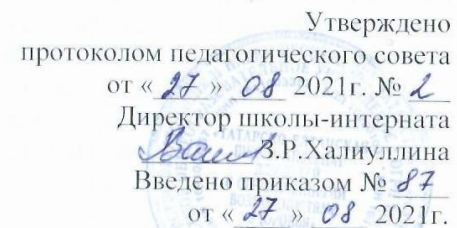 Утверждено
протоколом педагогического совета
от « 27 » 08 2021г. № 2
Директор школы-интерната
З.Р.Халиуллина
Введено приказом № 87
от « 27 » 08 2021г.